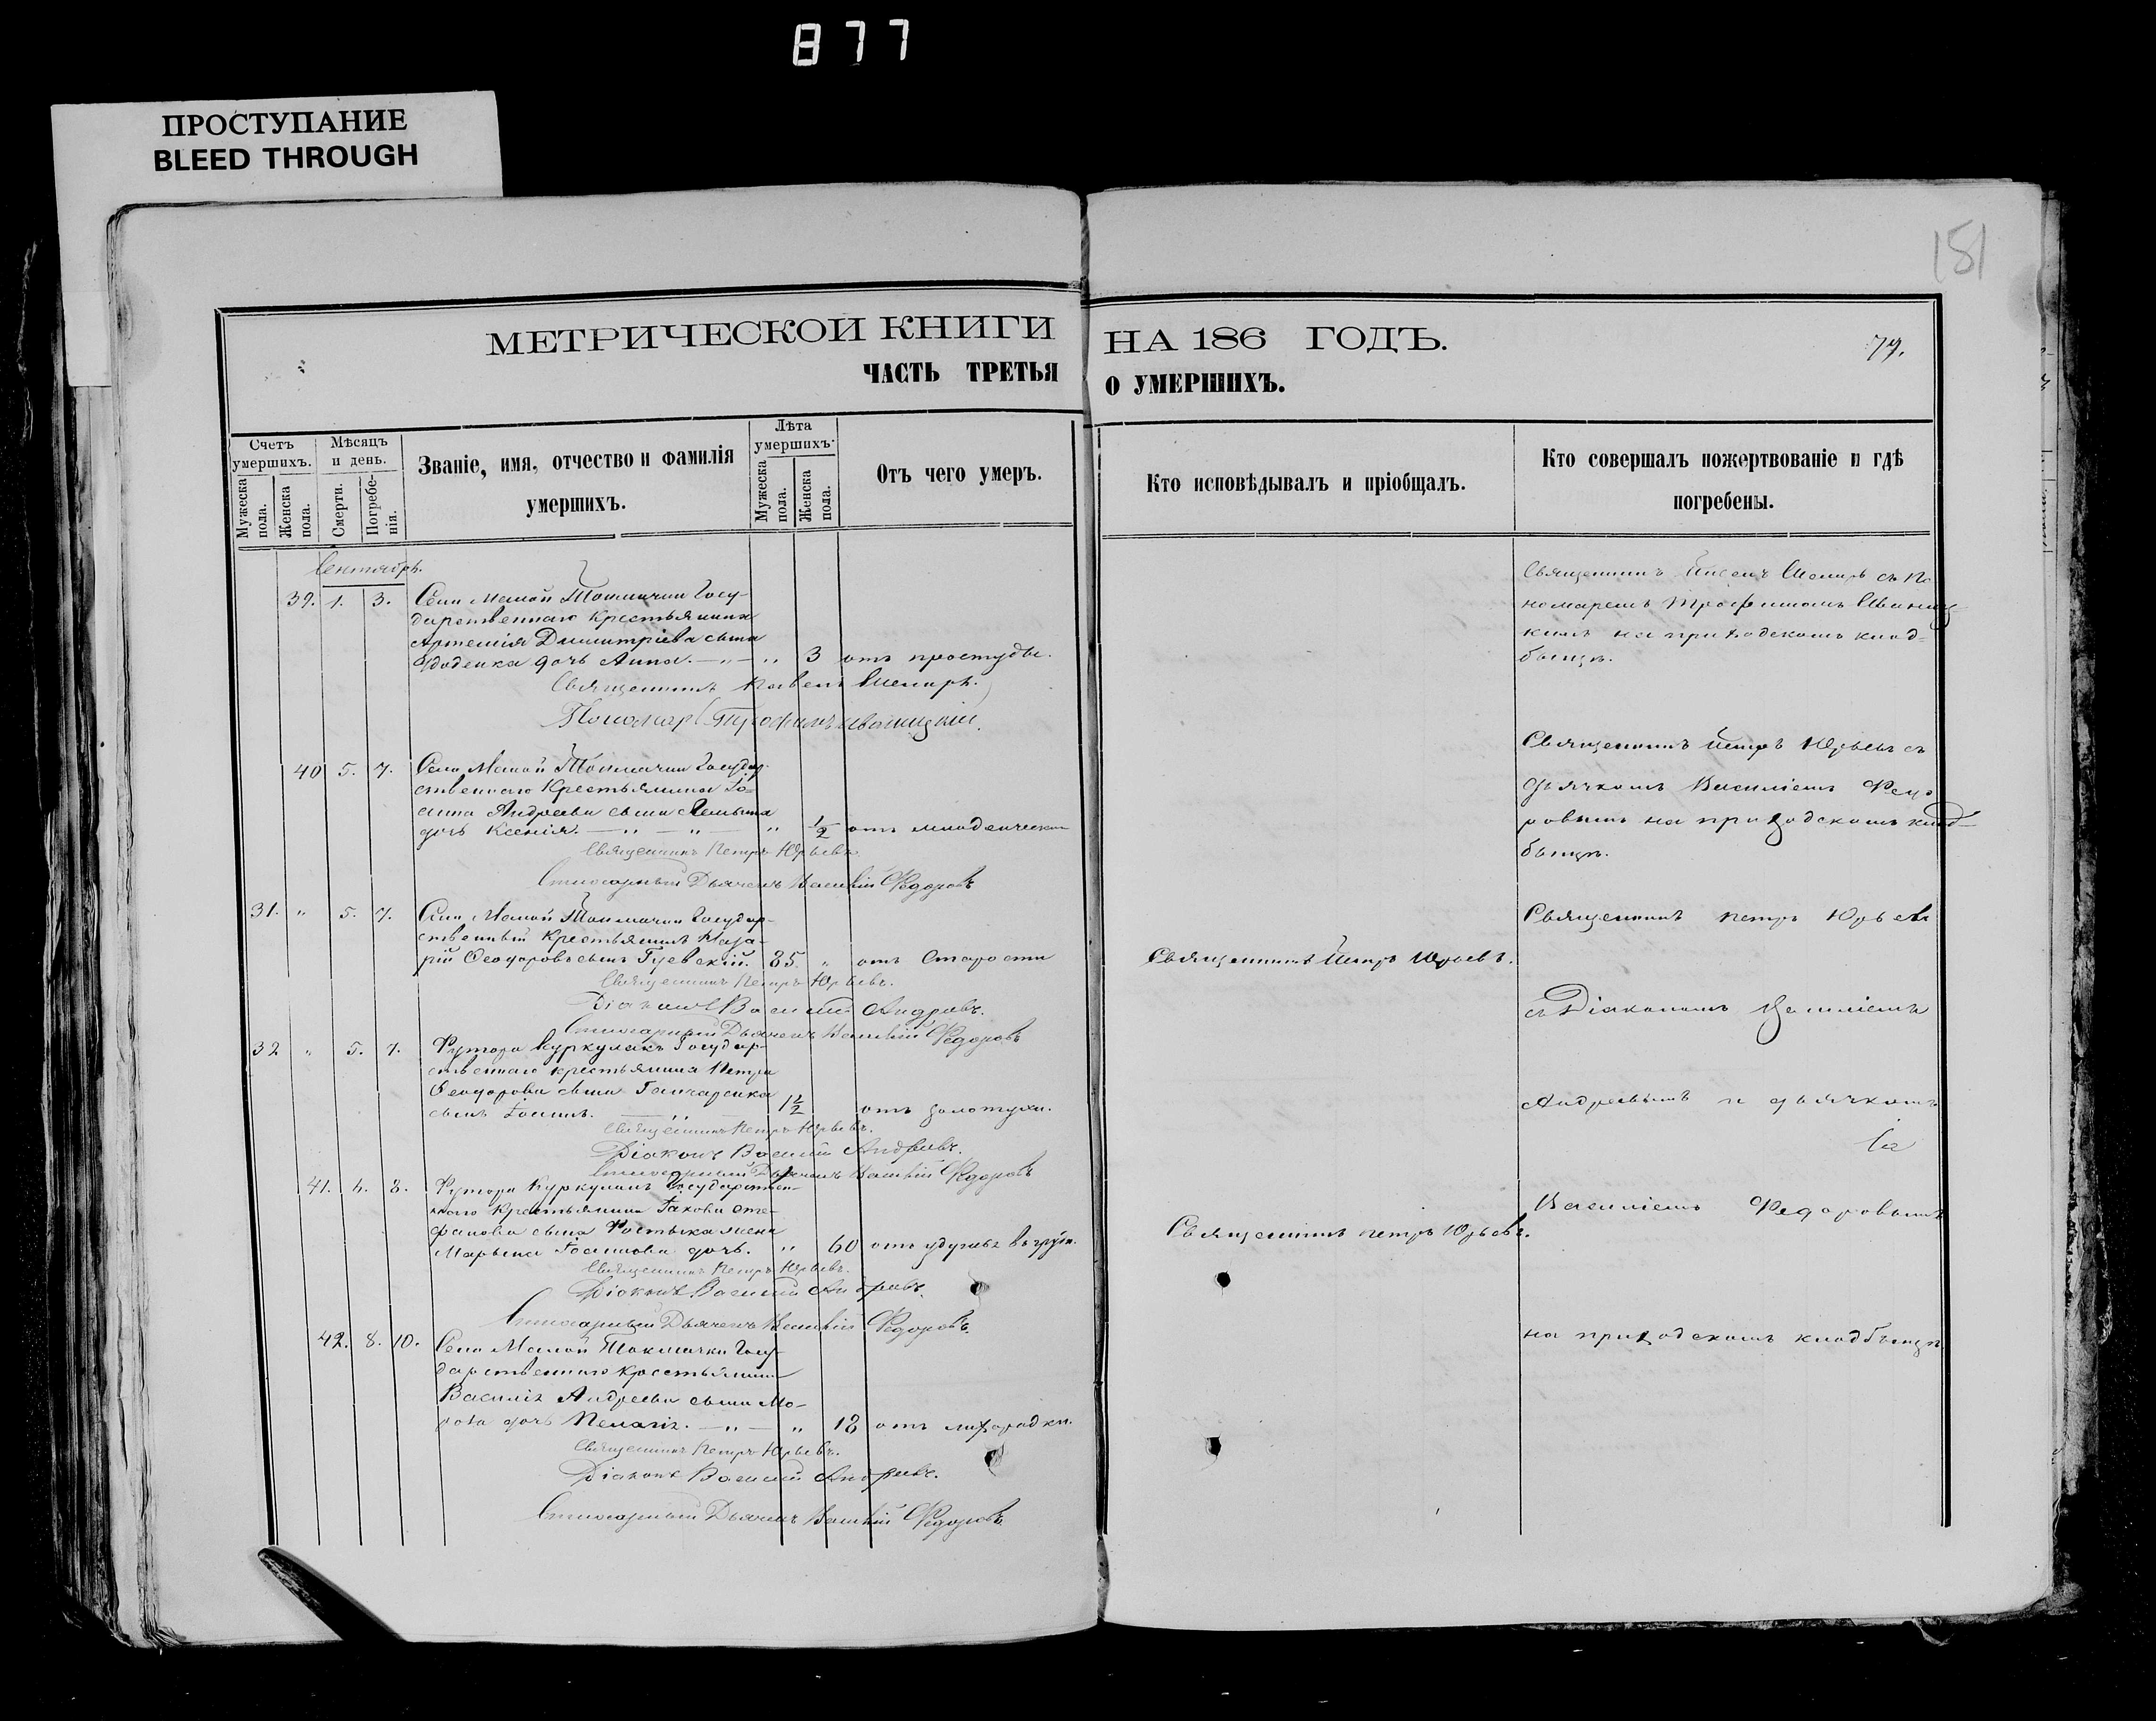 877
ПРОСТУПАНИЕ
BLEED THROUGH
151
МЕТРИЧЕСКОЙ КНИГИ НА 186 ГОДЪ.
77.
ЧАСТЬ ТРЕТЬЯ О УМЕРШИХЪ.
Счетъ умершихъ.
Мужеска пола.
Женска пола.
Мѣсяцъ и день.
Смерти.
Погребенія.
Званіе, имя, отчество и фамилія умершихъ.
Лѣта умершихъ.
Мужеска пола.
Женска пола.
Отъ чего умеръ.
Кто исповѣдывалъ и пріобщалъ.
Кто совершалъ пожертвованіе и гдѣ погребены.
Сентябрь.
39. 1. 3. Села Малой Токмачки Госу-
дарственнаго Крестьянина
Артемія Димитріева сына
дочь Анна. — „ — „ 3 отъ простуды.
Священникъ Павелъ
Пономарь Трофимъ Иваницкій.
Священникъ съ По-
номаремъ Трофимомъ Иваниц-
кимъ на приходскомъ клад-
бищѣ.
40 5. 7. Села Малой Токмачки Государ-
ственнаго Крестьянина Іо-
анна Андреева сына
дочь Ксенія. — „ — „ — „ 1/2 отъ младенческой
Священникъ Петръ Юрьевъ.
Дьячекъ Василій Федоровъ
Священникъ Петръ Юрьевъ съ
дьячкомъ Василіемъ Федо-
ровымъ на приходскомъ клад-
бищѣ.
31. „ 5. 7. Села Малой Токмачки Государ-
ственный Крестьянинъ Наза-
рій Феодоровъ сынъ Гуевскій. 85. „ отъ Старости
Священникъ Петръ Юрьевъ.
Діаконъ Василій Андреевъ.
Дьячекъ Василій Федоровъ
Священникъ Петръ Юрьевъ.
Священникъ Петръ Юрьевъ
съ Діакономъ Василіемъ
Андреевымъ и дьячкомъ
Василіемъ Федоровымъ
на приходскомъ кладбищѣ
32 „ 5. 7. Хутора Куркулакъ Государ-
ственнаго крестьянина Петра
Феодорова сына Ганчаренка
сынъ Іоаннъ. — „ — 1 1/2 отъ золотухи.
Священникъ Петръ Юрьевъ.
Діаконъ Василій Андреевъ.
Дьячекъ Василій Федоровъ
41. 6. 8. Хутора Куркулакъ Государствен-
наго Крестьянина Іакова Сте-
фанова сына жена
Марьяна Іоаннова дочь. „ 60 отъ
Священникъ Петръ Юрьевъ.
Діаконъ Василій Андреевъ.
Дьячекъ Василій Федоровъ.
Священникъ Петръ Юрьевъ.
42. 8. 10. Села Малой Токмачки Госу-
дарственнаго Крестьянина
Василія Андреева сына Мо-
дочь Пелагія. — „ — „ 18 отъ лихорадки.
Священникъ Петръ Юрьевъ.
Діаконъ Василій Андреевъ.
Дьячекъ Василій Федоровъ